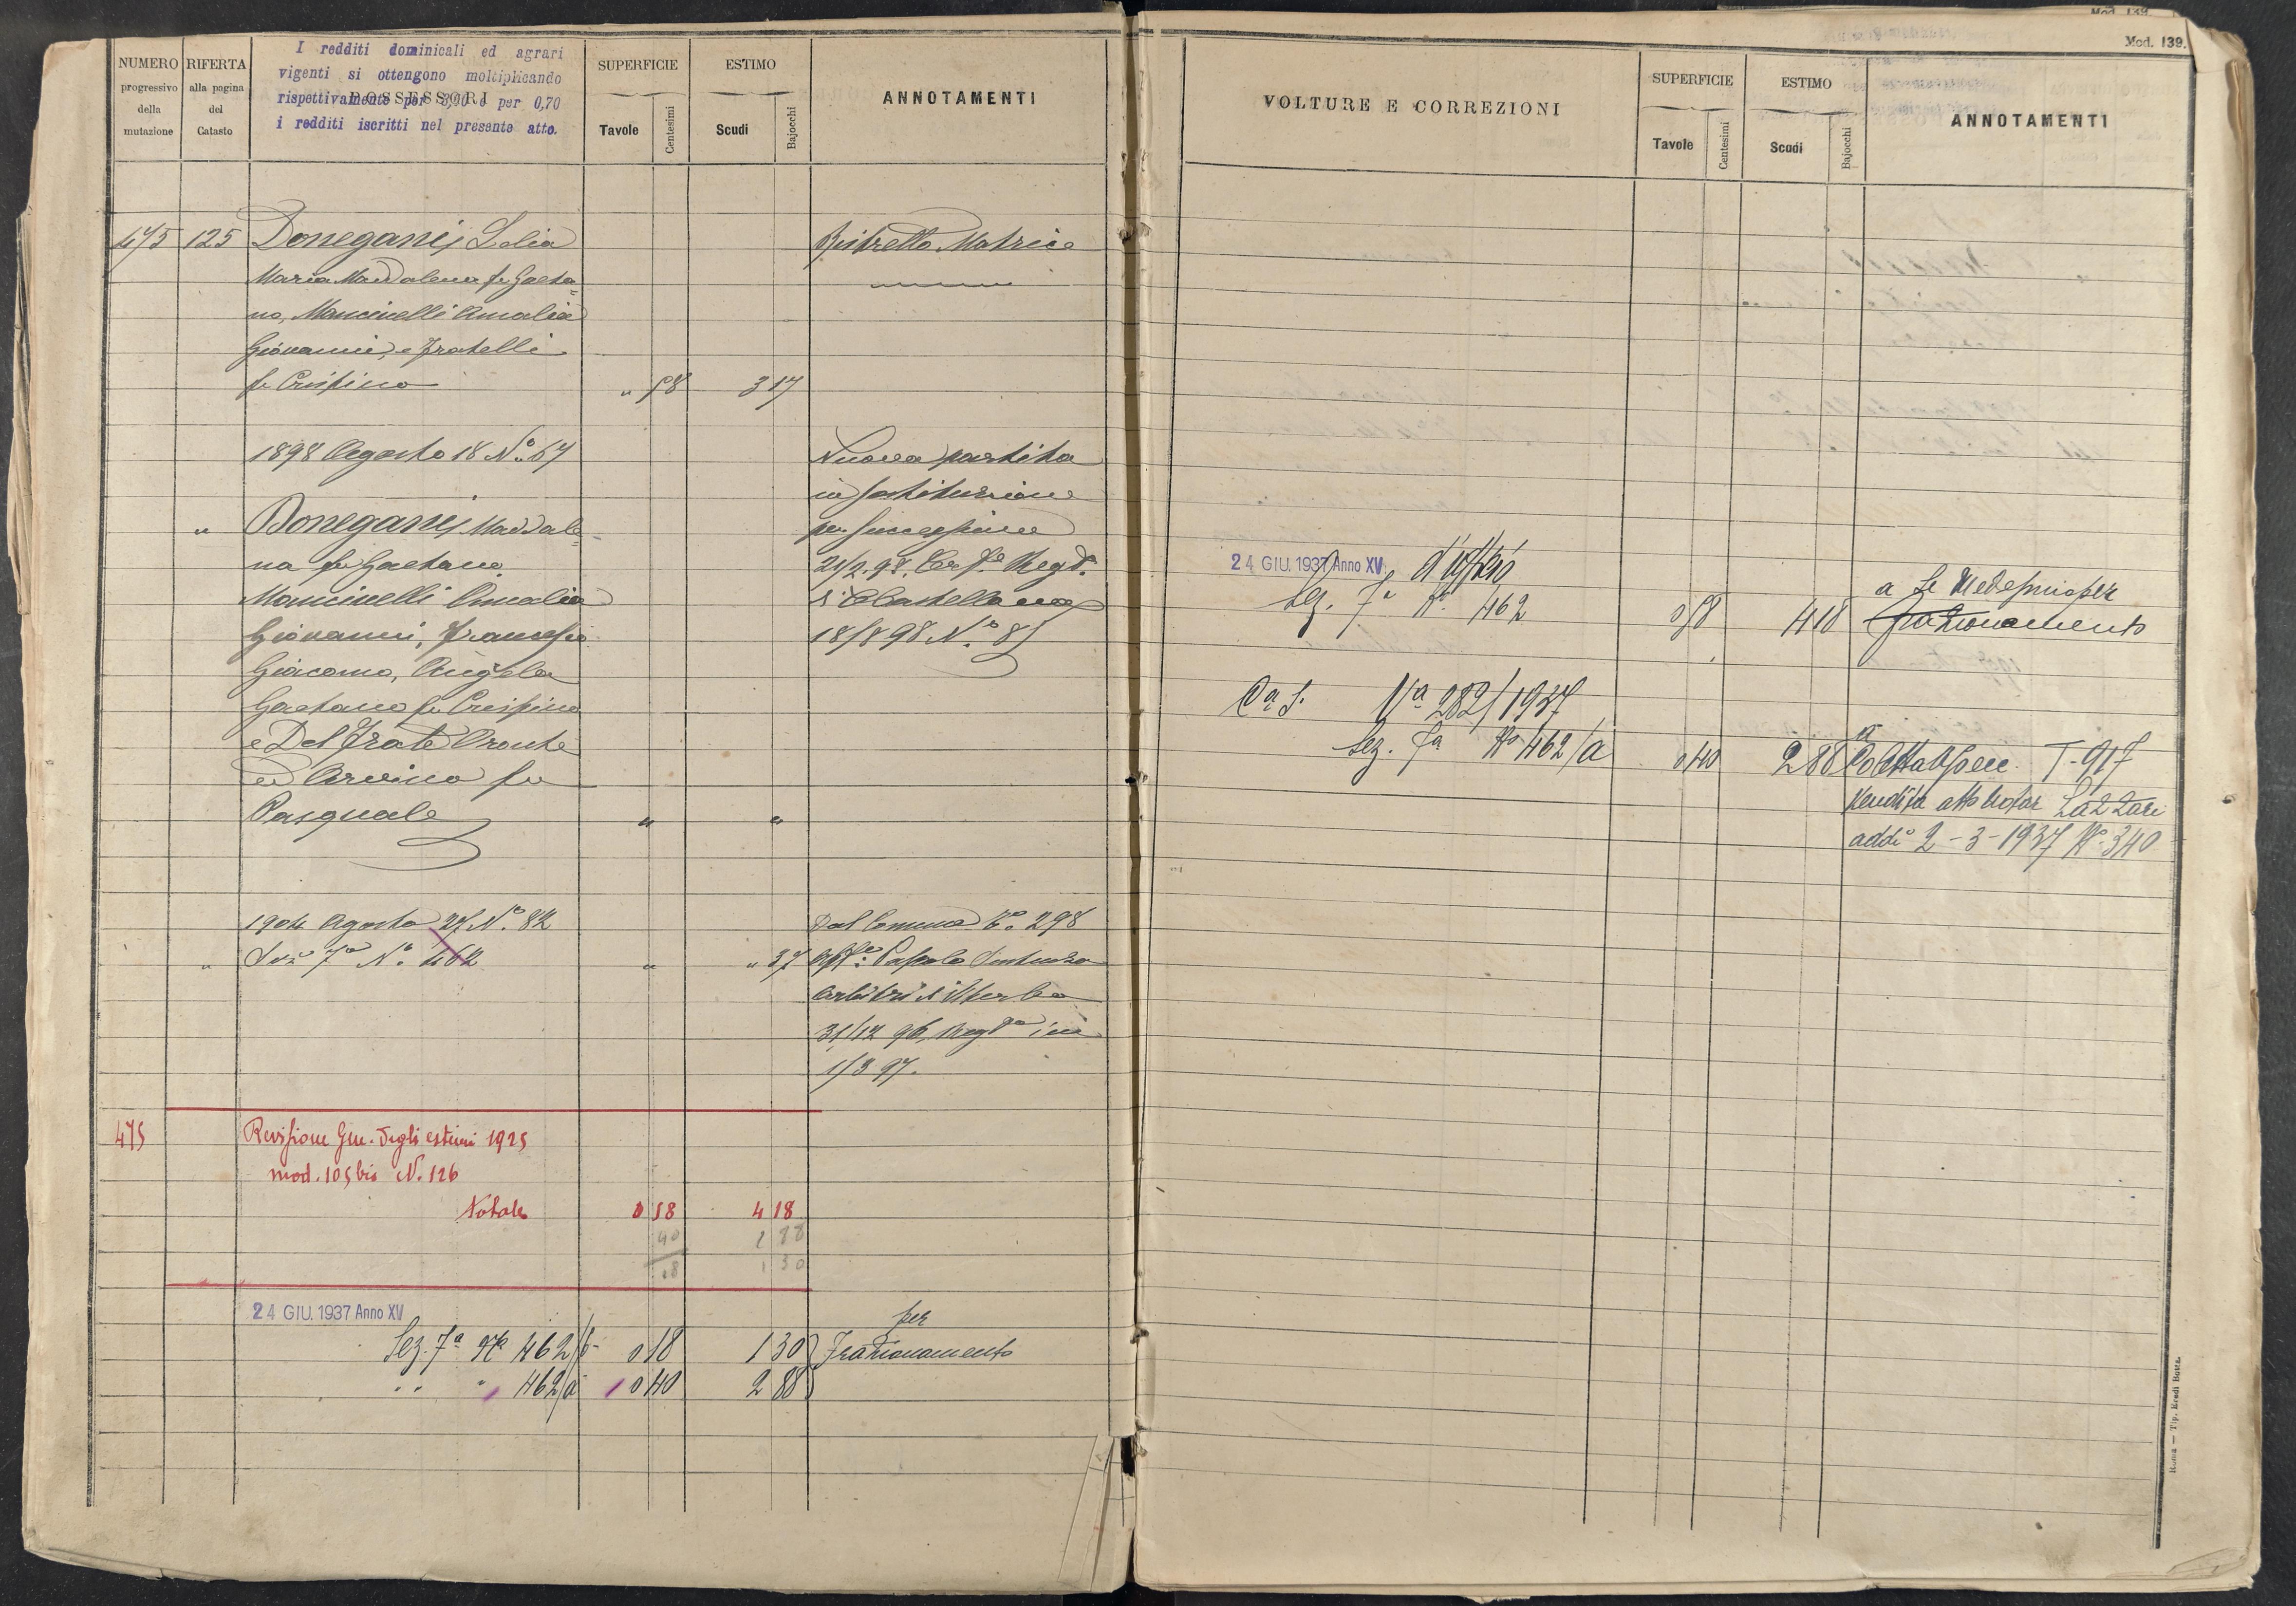 NUMERO progressivo della mutazione
RIFERTA alla pagina del Catasto
I redditi dominicali ed agrari
vigenti si ottengono moltiplicando
rispettivamente per e per 0,70
i redditi iscritti nel presente atto.
POSSESSORI
SUPERFICIE
Tavole Centesimi
ESTIMO
Scudi Bajocchi
ANNOTAMENTI
475 125 Donegani Lelia Ristretto Matrice
Maria Maddalena fu Gaeta=
no, Mancinelli Amalia
Giovanni, e fratelli
fu Crispino " 58 3 17
1898 Agosto 18 No. 67 Nuova partita
in sostituzione
" Donegani Maddale= per successione
na fu Gaetano
Mancinelli Amalia
Giovanni, Francesco 18/8 98 No. 85
Giacomo, Angela
Gaetano fu Crispino
e Del Frate Oronte
ed Arvino fu
Pasquale " "
1904 Agosto 25 No. 82 Dal Comune Va. 298
" Sez. 7a No. 462 " " 37
31/12 96, Regto in
1/3 97.
475 Revisione Gen. degli estimi 1925
mod. 105 bis N. 126
Totale 0 58 4 18
40 2 88
18 1 30
24 GIU. 1937 Anno XV per
Sez. 7a No 462/b 0 18 1 30 Frazionamento
" " " 462/a 0 40 2 88
Mod. 139.
VOLTURE E CORREZIONI
SUPERFICIE
Tavole Centesimi
ESTIMO
Scudi Bajocchi
ANNOTAMENTI
24 GIU. 1937 Anno XV. d'ufficio
a se medesimi per
Sez. 7a No. 462 0 58 4 18 frazionamento
Va 282/1937
Sez. 7a No 462/a 0 40 2 88 a T-917
Vendita atto Notar Lazzari
addì 2-3-1937 No 340
Roma — Tip. Eredi Botta.